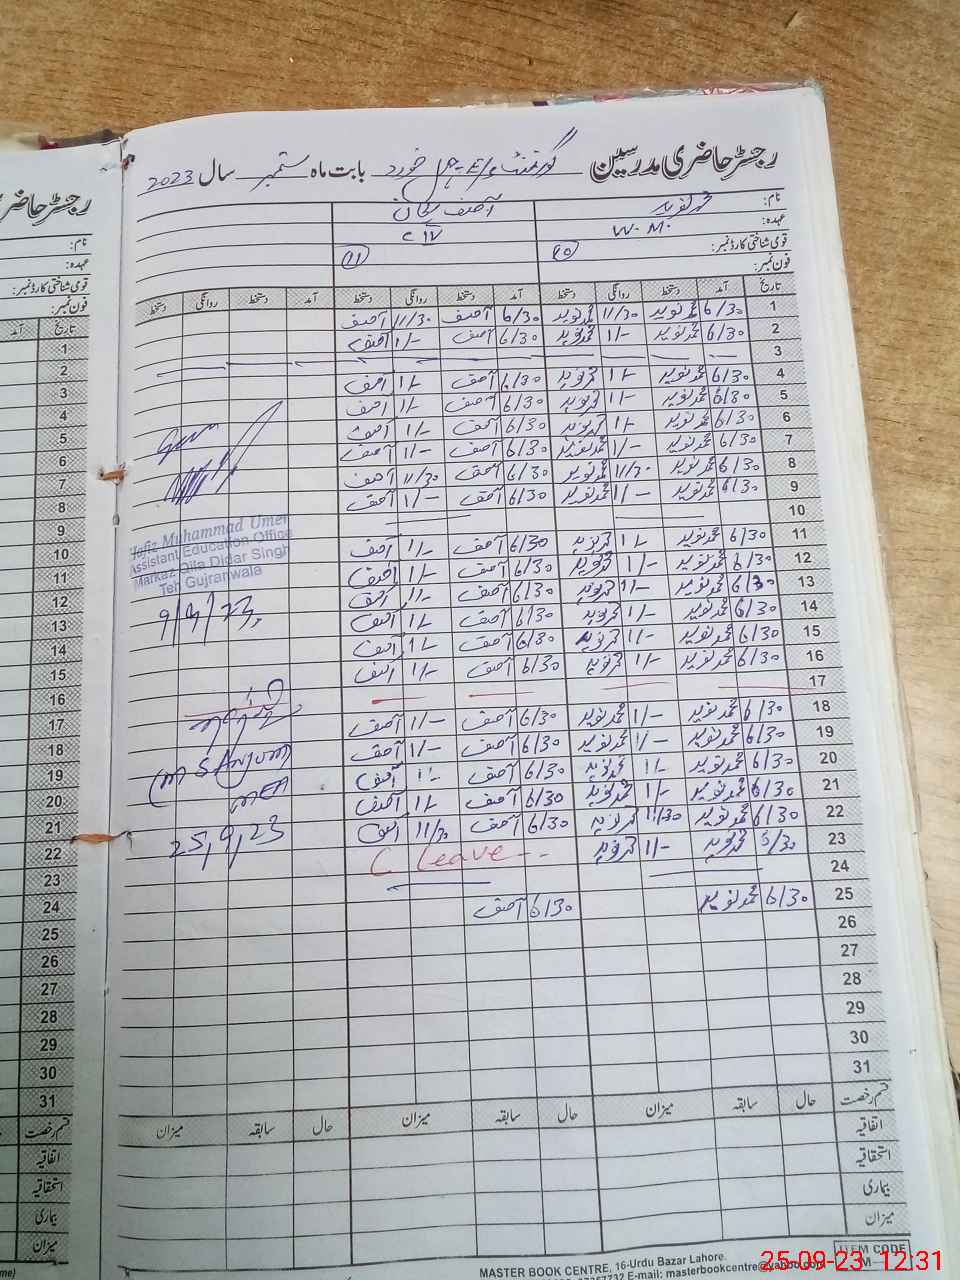 رجسٹر حاضری مدرسین گورنمنٹ خورد بابت ماہ ستمبر سال 2023
نام: محمد نوید آصف
عہدہ: W.M. C IV
قومی شناختی کارڈ نمبر: 11
فون نمبر:
تاریخ آمد دستخط روانگی دستخط آمد دستخط روانگی دستخط آمد دستخط روانگی دستخط
1 6/30 محمد نوید 11/30 محمد نوید 6/30 آصف 11/30 آصف
2 6/30 محمد نوید 1/- محمد نوید 6/30 آصف 1/- آصف
3
4 6/30 محمد نوید 1/- محمد نوید 6/30 آصف 1/- آصف
5 6/30 محمد نوید 1/- محمد نوید 6/30 آصف 1/- آصف
6 6/30 محمد نوید 1/- محمد نوید 6/30 آصف 1/- آصف
7 6/30 محمد نوید 1/- محمد نوید 6/30 آصف 1/- آصف
8 6/30 محمد نوید 11/30 محمد نوید 6/30 آصف 11/30 آصف
9 6/30 محمد نوید 1/- محمد نوید 6/30 آصف 1/- آصف
10
11 6/30 محمد نوید 1/- محمد نوید 6/30 آصف 1/- آصف
12 6/30 محمد نوید 1/- محمد نوید 6/30 آصف 1/- آصف
13 6/30 محمد نوید 1/- محمد نوید 6/30 آصف 1/- آصف
14 6/30 محمد نوید 1/- محمد نوید 6/30 آصف 1/- آصف
15 6/30 محمد نوید 1/- محمد نوید 6/30 آصف 1/- آصف
16 6/30 محمد نوید 1/- محمد نوید 6/30 آصف 1/- آصف
17
18 6/30 محمد نوید 1/- محمد نوید 6/30 آصف 1/- آصف
19 6/30 محمد نوید 1/- محمد نوید 6/30 آصف 1/- آصف
20 6/30 محمد نوید 1/- محمد نوید 6/30 آصف 1/- آصف
21 6/30 محمد نوید 1/- محمد نوید 6/30 آصف 1/- آصف
22 6/30 محمد نوید 11/30 محمد نوید 6/30 آصف 11/30 آصف
23 6/30 محمد نوید 1/- محمد نوید C leave
24
25 6/30 محمد نوید 6/30 آصف
26
27
28
29
30
31
قسم رخصت حال سابقہ میزان حال سابقہ میزان حال سابقہ میزان
اتفاقیہ
استحقاقیہ
بیماری
میزان
Hafiz Muhammad Umer
Assistant Education Officer
Markaz Qila Didar Singh
Teh Gujranwala
9/9/23
(M S Anjum)
MEA
25,9,23
ITEM CODE
MASTER BOOK CENTRE, 16-Urdu Bazar Lahore.
E-mail: masterbookcentre@yahoo.com
رجسٹر حاضری
نام:
عہدہ:
قومی شناختی کارڈ نمبر:
فون نمبر:
تاریخ آمد
1
2
3
4
5
6
7
8
9
10
11
12
13
14
15
16
17
18
19
20
21
22
23
24
25
26
27
28
29
30
31
قسم رخصت
اتفاقیہ
استحقاقیہ
بیماری
میزان
25-09-23 12:31